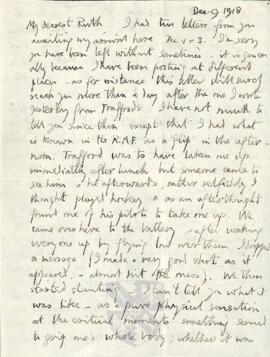 Dec 9 1918
My dearest Ruth I had two letters from you
awaiting my arrival here Dec 1 & 3. I'm sorry
you have been left without sometimes - it is gener-
ally because I have been posting at different
places - as for instance this letter still
reach you more than a day after the one I wrote
yesterday from Trafford's. I have not much to
tell you since then except that I had what
is known in the R.A.F. as a 'flip' in the after-
noon. Trafford was to have taken me up
immediately after lunch but someone came to
see him & he afterwards, rather selfishly I
thought played hockey & as an afterthought
found one of his pilots to take me up. We
came over here to the battery & after waking
everyone up by flying over them I dropped
a message (I made a very good shot as it
appeared, & almost hit the mess). We then
started stunting. I can't tell you what it
was like - as a pure physical sensation
at the critical moments something seemed
to grip one's whole body, whether it was